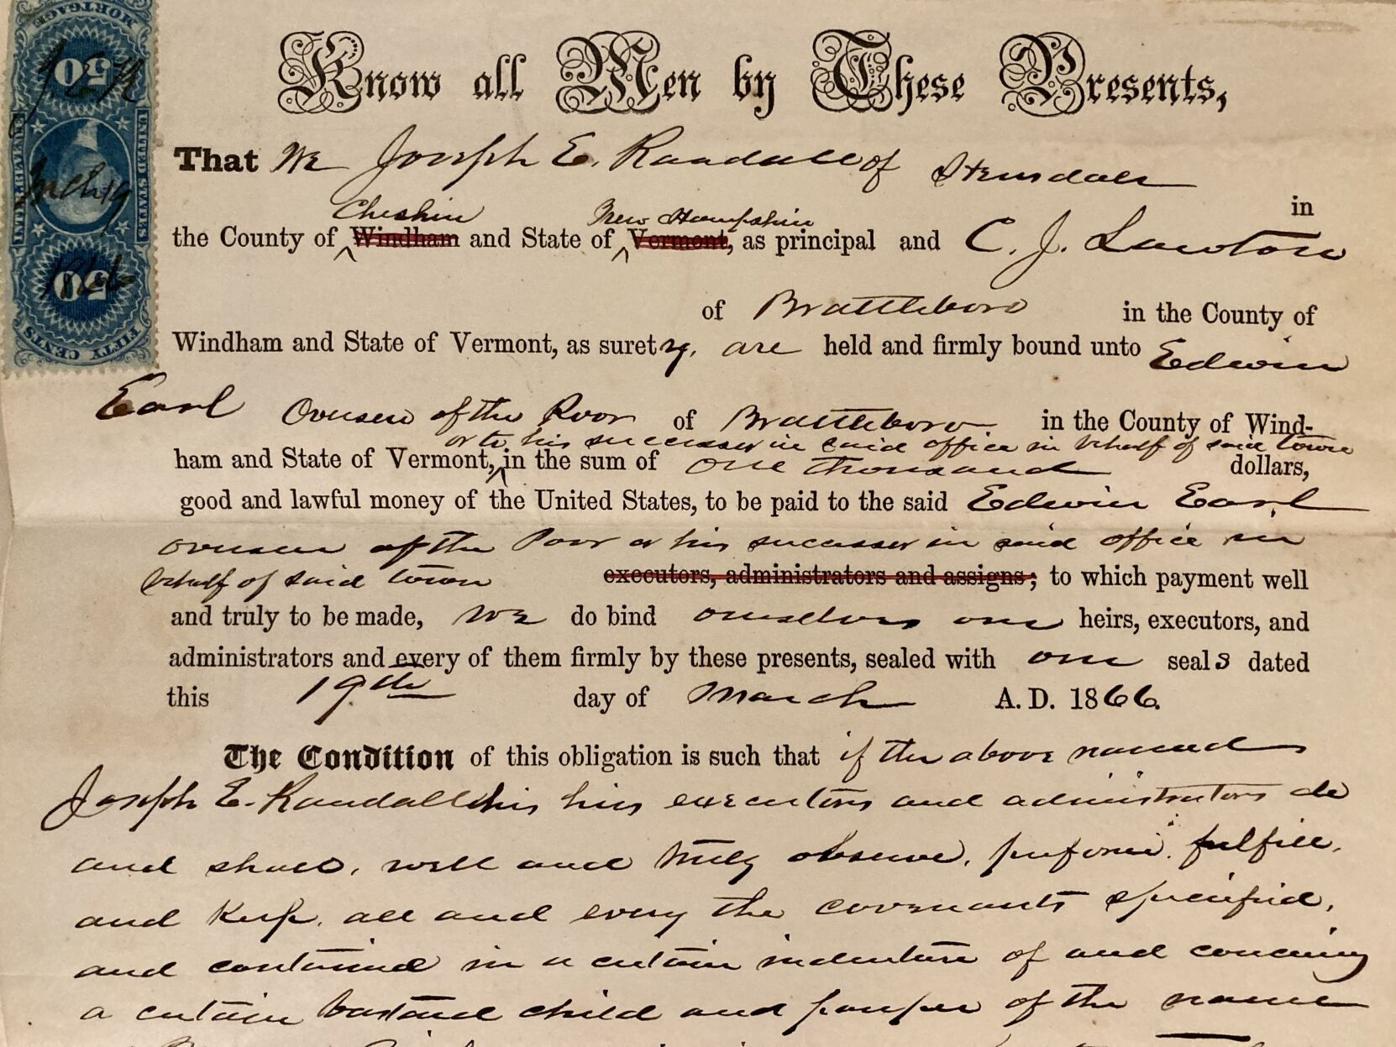 Know all Men by These Presents,
That We Joseph E. Randall of Hinsdale
in
Cheshire New Hampshire
the County of Windham and State of Vermont, as principal and C. J. Lawton
of Brattleboro in the County of
Windham and State of Vermont, as surety, are held and firmly bound unto Edwin
Earl Overseer of the Poor of Brattleboro in the County of Wind-
or to his successor in said office in behalf of said town
ham and State of Vermont, in the sum of one thousand dollars,
good and lawful money of the United States, to be paid to the said Edwin Earl
overseer of the Poor or his successor in said office in
behalf of said town executors, administrators and assigns; to which payment well
and truly to be made, we do bind ourselves our heirs, executors, and
administrators and every of them firmly by these presents, sealed with our seals dated
this 19th day of March A. D. 1866.
The Condition of this obligation is such that if the above named
Joseph E. Randall his executors and administrators do
and shall, well and truly observe, perform, fulfill,
and keep, all and every the covenants specified,
and contained in a certain indenture of and concerning
a certain bastard child and pauper of the name
MORTGAGE
50
J. E. R.
UNITED STATES
INTER. REVENUE
Mch 19
1866
50
FIFTY CENTS